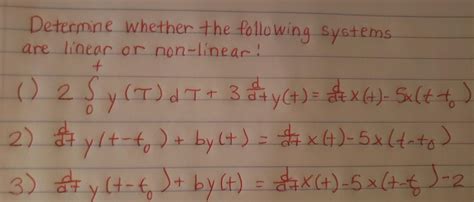 Determine whether the following systems
are linear or non-linear!
1) 2 ∫₀ᵗ y(τ)dτ + 3 d/dt y(t) = d/dt x(t) - 5x(t-t₀)
2) d/dt y(t-t₀) + by(t) = d/dt x(t) - 5x(t-t₀)
3) d/dt y(t-t₀) + by(t) = d/dt x(t) - 5x(t-t₀) - 2